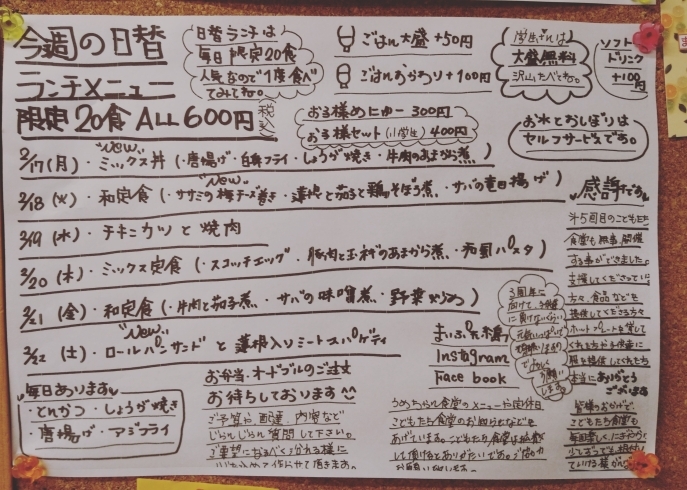 今週の日替
ランチメニュー
限定20食 ALL 600円 税込
日替ランチは
毎日限定20食
人気なので1度食べ
てみてね。
ごはん大盛 +50円
ごはんおかわり +100円
学生さんは
大盛無料
沢山たべてね。
ソフト
ドリンク
+100円
お子様めにゅー 300円
お子様セット (小学生) 400円
お水とおしぼりは
セルフサービスです。
New
2/17 (月)・ミックス丼 (・唐揚げ・白身フライ・しょうが焼き・牛肉のあまから煮)
New
2/18 (火)・和定食 (・ササミの梅チーズ巻き・蓮根と茄子と鶏そぼろ煮・サバの竜田揚げ)
2/19 (水)・チキンカツと焼肉
2/20 (木)・ミックス定食 (・スコッチエッグ・豚肉と玉ネギのあまから煮・和風パスタ)
2/21 (金)・和定食 (・牛肉と茄子煮・サバの味噌煮・野菜)
New
2/22 (土)・ロールパンサンドと蓮根入りミートスパゲティ
毎日あります
・とんかつ・しょうが焼き
・唐揚げ・アジフライ
お弁当・オードブルのご注文
お待ちしております
ご予算や配達、内容など
じゃんじゃん質問して下さい。
ご要望になるべくそかれる様に
心を込めて作らせて頂きます。
Instagram
Face book
3周年に
向けて
うめちゃん食堂のメニューや定休日
こどもたち食堂のお知らせなどを
あげています。こどもたち食堂は拡散
して頂けるとありがたいです。ご協力
お願い致します。
感謝です
第5回目のこどもたち
食堂も無事、開催
する事ができました。
支援してくださっている
方々、食品などを
提供してくださる方々
ホットプレートを貸して
くれる方や子供達に
服を提供してくれた方
本当にありがとう
ございます
皆様のおかげで、
こどもたち食堂も